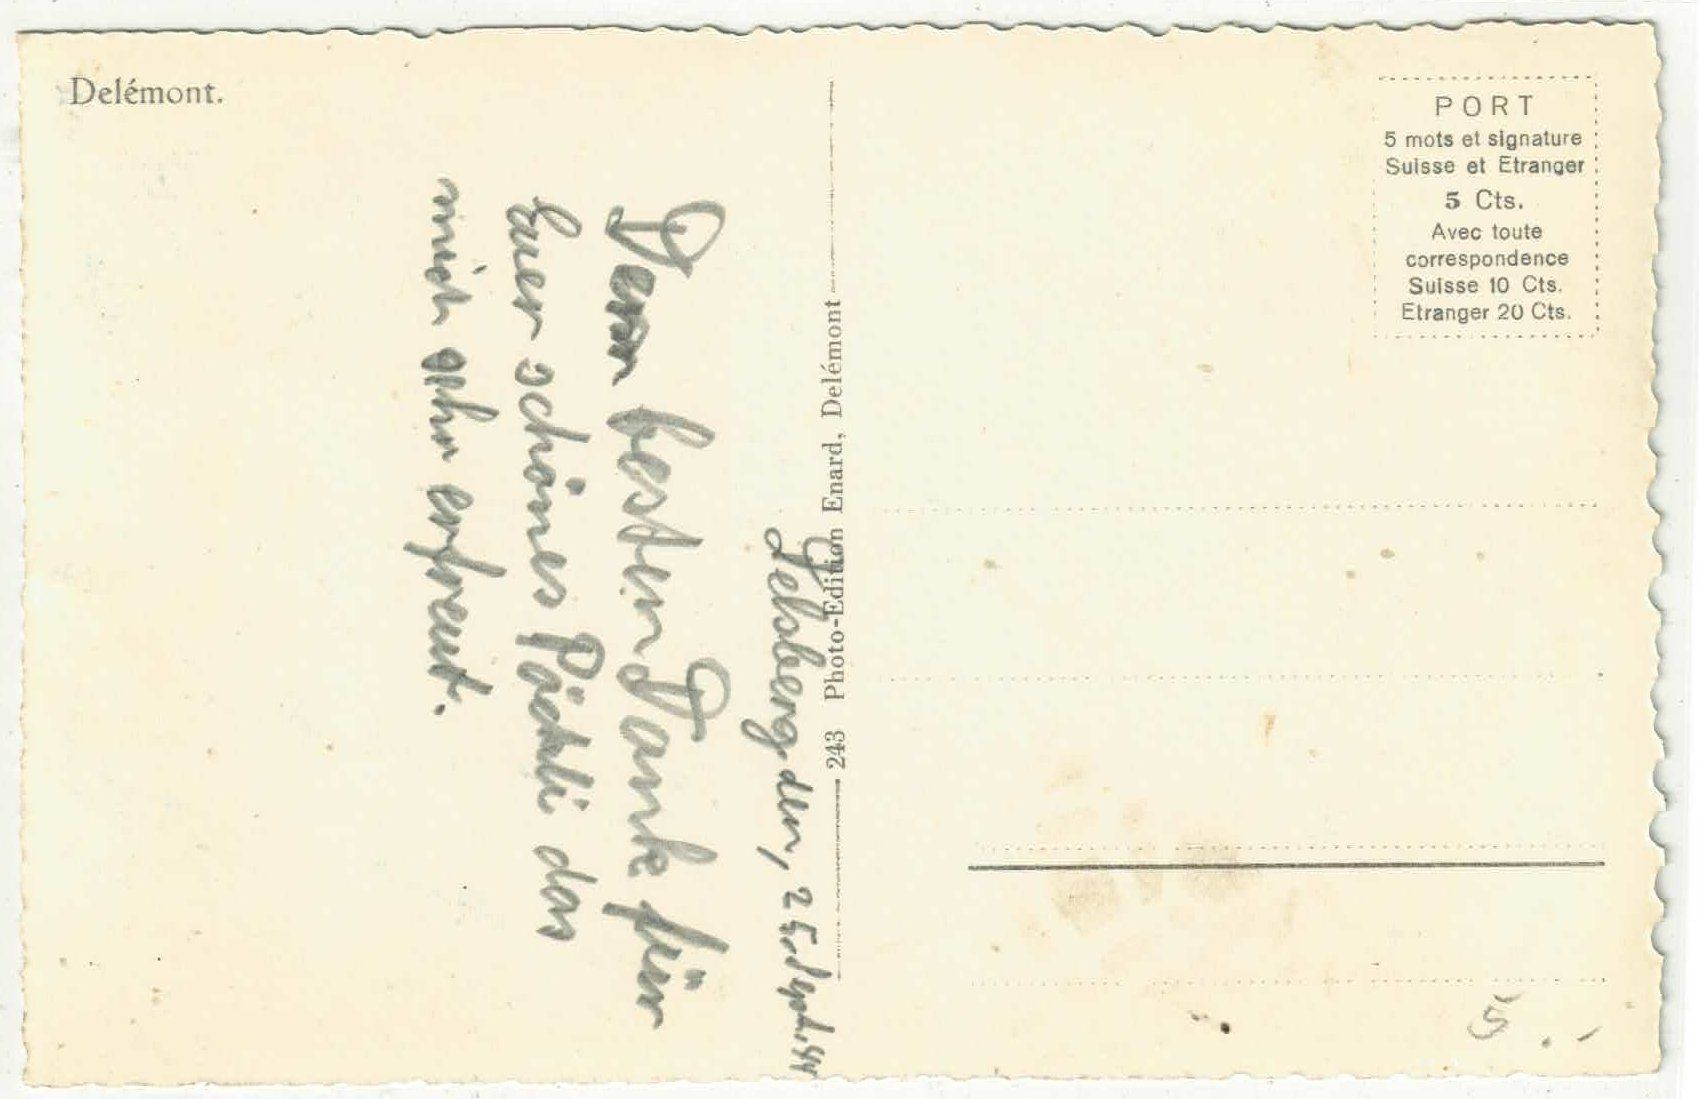 Delémont.
PORT
5 mots et signature
Suisse et Etranger
5 Cts.
Avec toute
correspondence
Suisse 10 Cts.
Etranger 20 Cts.
243 Photo-Edition Enard, Delémont
Delsberg den, 25. Sept. 44
besten Dank für
Euer schönes Päckli das
mich sehr erfreut.
5